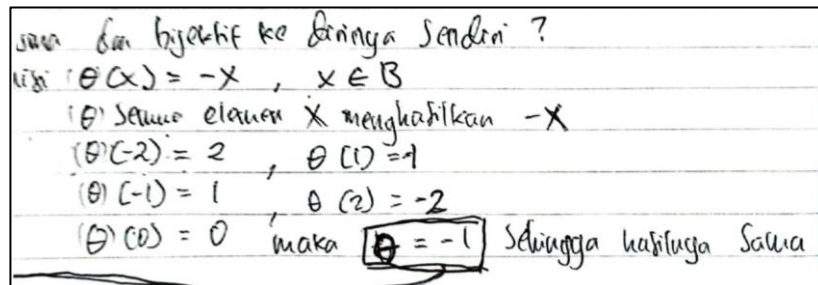 sama dan bijektif ke dirinya sendiri ?
θ(x) = -x , x ∈ B
(θ) semua elemen x menghasilkan -x
(θ)(-2) = 2 , θ(1) = -1
(θ)(-1) = 1 , θ(2) = -2
(θ)(0) = 0 maka θ = -1 sehingga hasilnya sama